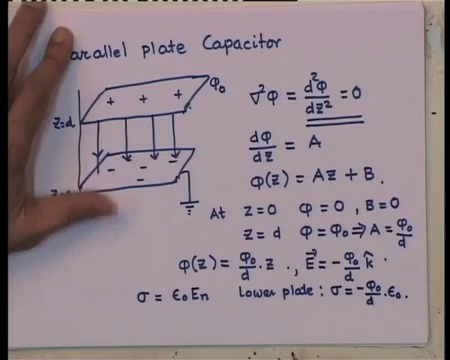 arallel plate Capacitor
+ + + φ₀
z=d
- - - - -
∇²φ = d²φ/dz² = 0
dφ/dz = A
φ(z) = Az + B .
At z=0 φ=0 , B=0
z=d φ=φ₀ ⇒ A = φ₀/d
φ(z) = φ₀/d . z . , E⃗ = - φ₀/d k̂ .
σ = ε₀En Lower plate : σ = - φ₀/d . ε₀ .